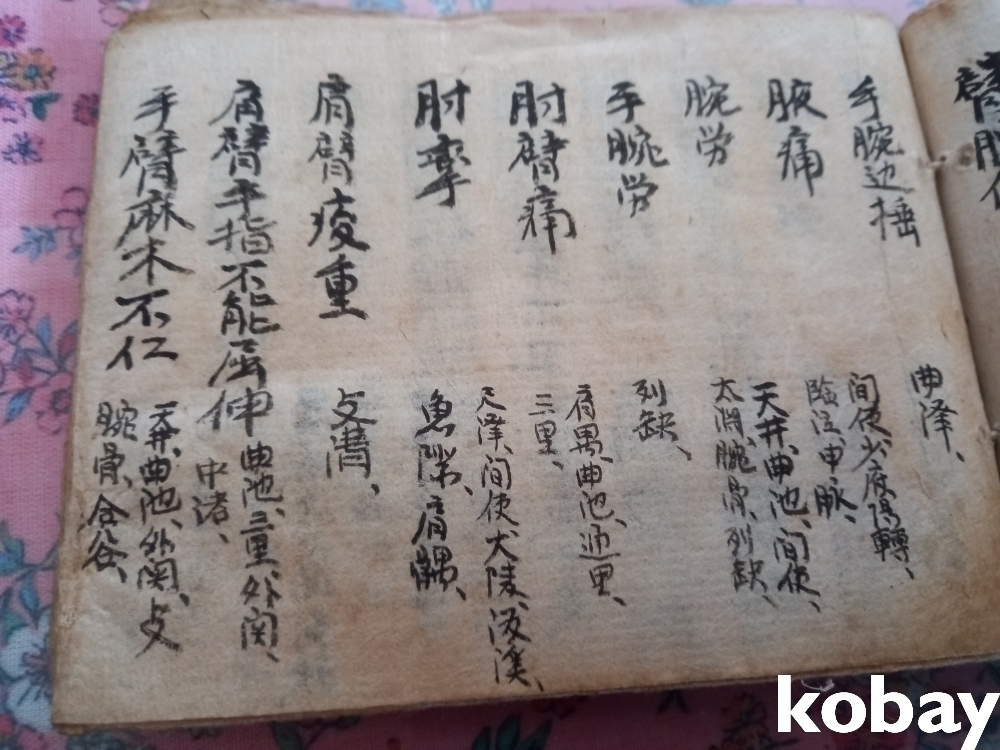 手腕边捶
曲泽、
腋痛
间使、少府、陽輔、
临泣、申脉、
腕劳
天井、曲池、间使、
太渊、腕骨、列缺、
手腕劳
列缺、
肘臂痛
肩髃、曲池、通里、
三里、
肘挛
尺澤、间使、大陵、後溪、
魚際、肩髃、
肩臂痠重
支溝、
肩臂手指不能屈伸
曲池、三里、外関、
中渚、
手臂麻木不仁
天井、曲池、外関、支
腕骨、合谷、
kobay